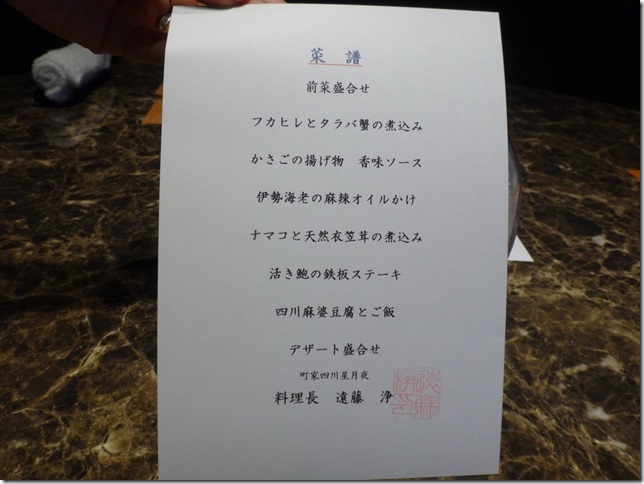 菜　譜
前菜盛合せ
フカヒレとタラバ蟹の煮込み
かさごの揚げ物　香味ソース
伊勢海老の麻辣オイルかけ
ナマコと天然衣笠茸の煮込み
活き鮑の鉄板ステーキ
四川麻婆豆腐とご飯
デザート盛合せ
町家四川星月夜
料理長　遠藤　浄